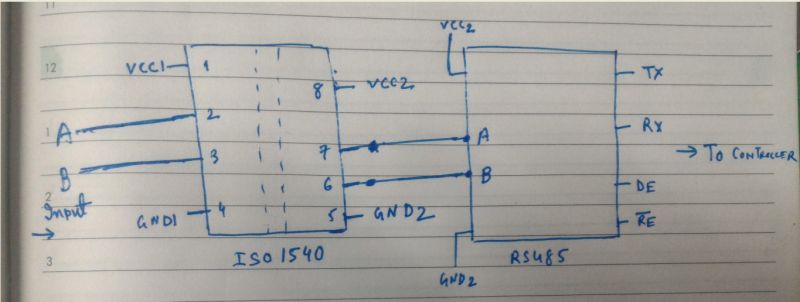 11
VCC2
12
VCC1
1
TX
8
VCC2
A
2
1
7
A
RX
B
3
→ TO CONTROLLER
6
B
DE
2
Input
GND1
4
5
GND2
RE
→
ISO1540
RS485
3
GND2